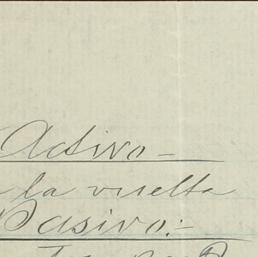 Activo-
la vuelta
Pasivo:-